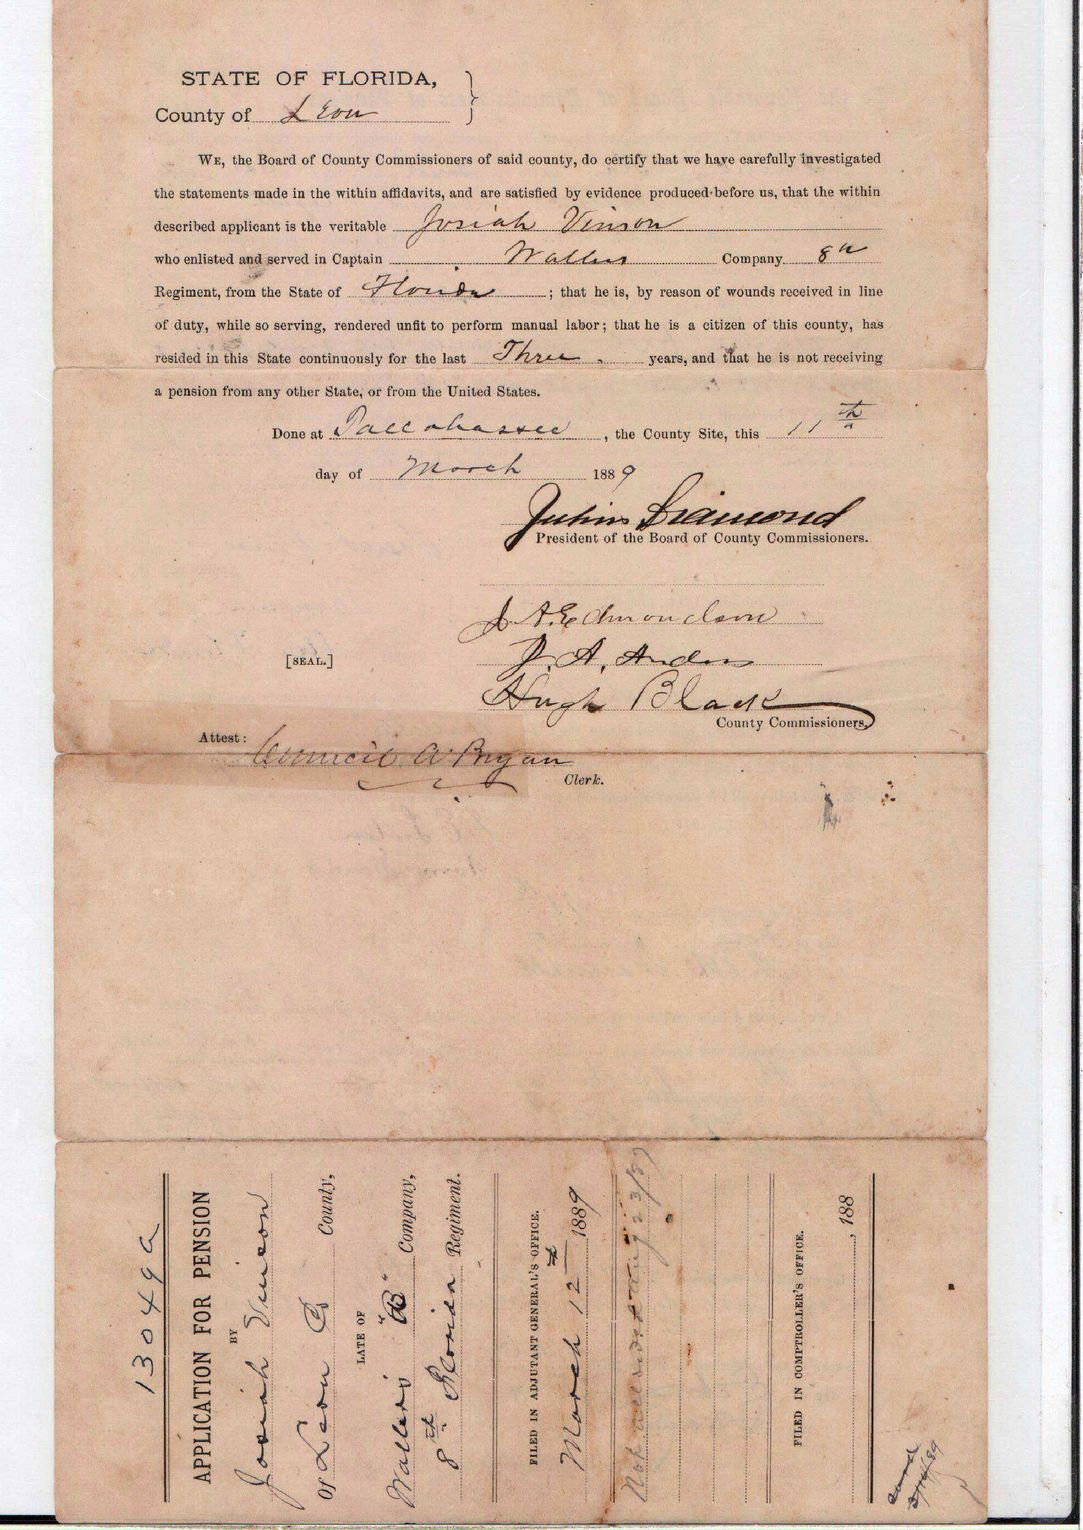 STATE OF FLORIDA,
County of Leon
WE, the Board of County Commissioners of said county, do certify that we have carefully investigated
the statements made in the within affidavits, and are satisfied by evidence produced before us, that the within
described applicant is the veritable Josiah Vinson
who enlisted and served in Captain Wallers Company 8th
Regiment, from the State of Florida ; that he is, by reason of wounds received in line
of duty, while so serving, rendered unfit to perform manual labor; that he is a citizen of this county, has
resided in this State continuously for the last Three years, and that he is not receiving
a pension from any other State, or from the United States.
Done at Tallahassee, the County Site, this 11th
day of March 1889
Julius Diamond
President of the Board of County Commissioners.
J A Edmondson
J. A. Anders
Hugh Black
County Commissioners,
[SEAL.]
Attest: Council A Bryan
Clerk.
13049 a
APPLICATION FOR PENSION
BY
Josiah Vinson
Of Leon Co County,
LATE OF
Wallers "B" Company,
8th Florida Regiment.
FILED IN ADJUTANT GENERAL'S OFFICE.
March 12th 1889
Not allowed Aug 23/89
FILED IN COMPTROLLER'S OFFICE.
, 188